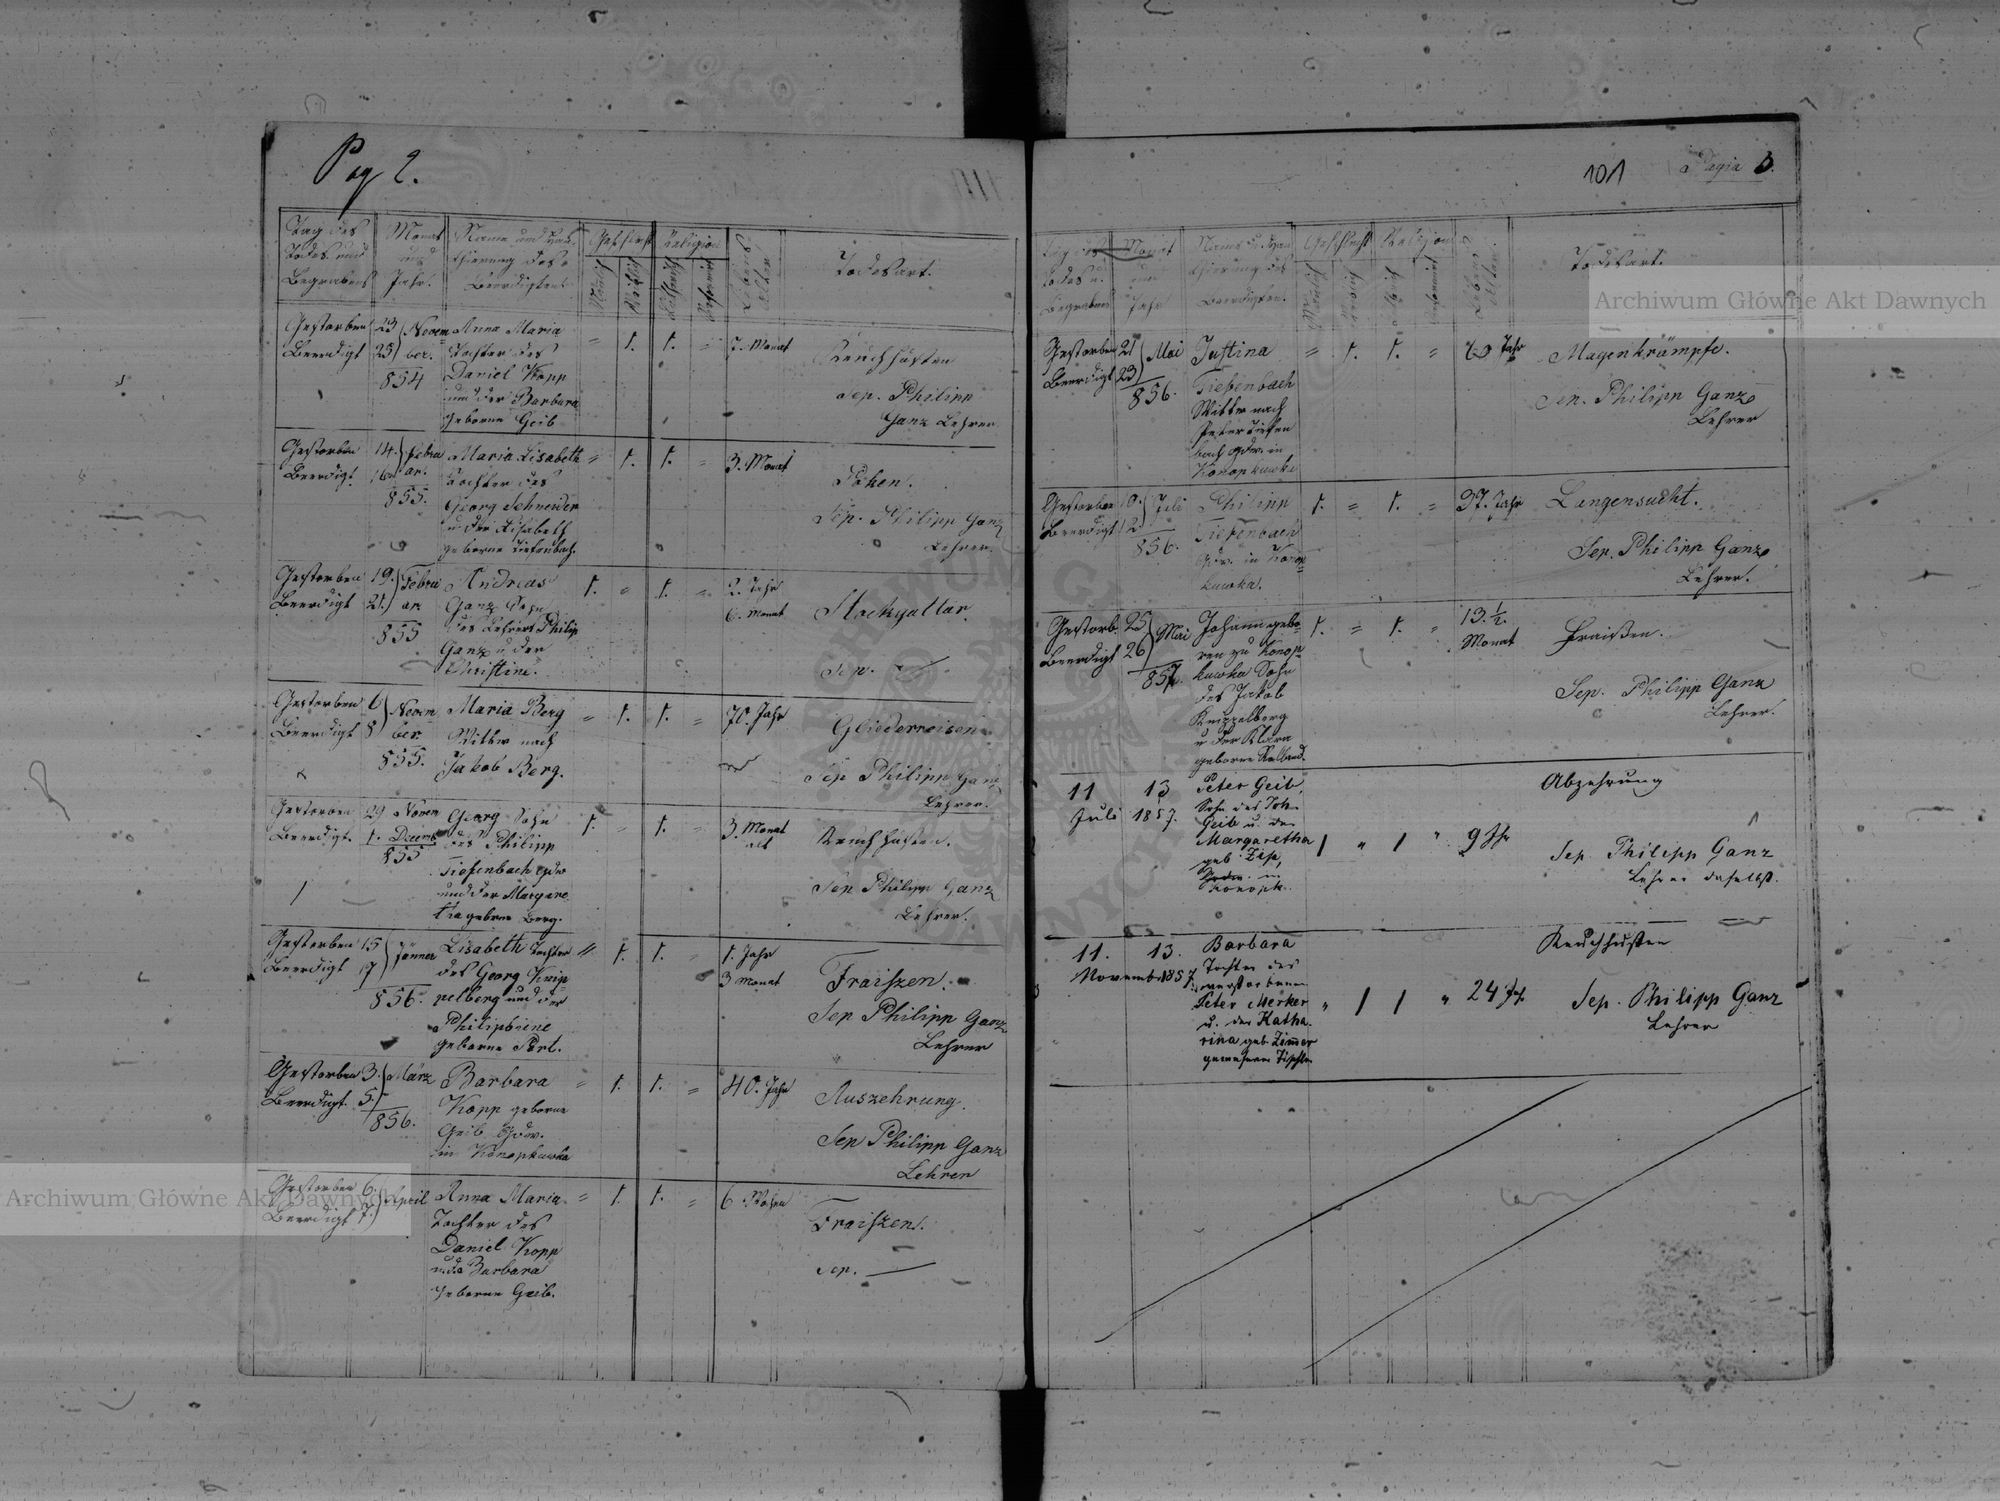 Pag 2.
Tag des Todes und Begrabens
Monat und Jahr.
Name und Hanthierung des Beerdigten
Geschlecht
Männlich
Weiblich
Religion
Lebens Alter
Todesart.
Gestorben 23 Novem
Beerdigt 25 ber.
854
Anna Maria
Tochter des
Daniel Kopp
und der Barbara
geborne Geib
" 1. 1. " 7. Monat
Keuchhusten
Sep. Philipp
Ganz Lehrer
Gestorben 14. Febru
Beerdigt 16 ar.
855.
Maria Lisabeth
Tochter des
Georg Schneider
u der Lisabeth
geborne Tiefenbach.
" 1. 1. " 3. Monat
Poken.
Sep. Philipp Ganz
Lehrer.
Gestorben 19. Febru
Beerdigt 21. ar
855
Andreas
Ganz Sohn
des Lehrers Philip
Ganz u der
Christine.
1. " 1. " 2. Jahr
6. Monat
Stockgattar.
Sep.
Gestorben 6 Novem
Beerdigt 8 ber
855.
Maria Berg
Wittw nach
Jakob Berg.
" 1. 1. " 70. Jahr
Gliederreisen
Sep Philipp Ganz
Lehrer.
Gestorben 29 Novem
Beerdigt 1. Decemb
855
Georg Sohn
des Philipp
Tiefenbach
und der Margare
tha geborne Berg.
1. " 1. " 3. Monat
alt
Keuchhusten.
Sep Philipp Ganz
Lehrer.
Gestorben 15 Jänner
Beerdigt 17
856.
Lisabeth Tochter
des Georg Knip=
pelberg und der
Philippine
geborne
" 1. 1. " 1. Jahr
3 Monat
Fraiszen.
Sep Philipp Ganz
Lehrer
Gestorben 3. März
Beerdigt 5.
856.
Barbara
Kopp geborne
Geib Gdw.
in Konopkuwka
" 1. 1. " 40. Jahr
Auszehrung.
Sep Philipp Ganz
Lehrer
Gestorben 6. April
Beerdigt 7.
Anna Maria
Tochter des
Daniel Kopp
u. d. Barbara
geborne Geib.
" 1. 1. " 6 Wochen
Fraiszen.
Sep.
101 Pagia 3.
Tag des Todes u. Begrabens
Monat und Jahr
Name u. Han thierung des Beerdigten.
Geschlecht
Religion
Lebens Alter
Todesart.
Gestorben 21 Mai
Beerdigt 23
856.
Justina
Tiefenbach
Wittw nach
Peter Tiefen
bach Gdw. in
Konopkuwka
" 1. 1. " Jahr
Magenkrämpfe.
Sep. Philipp Ganz
Lehrer
Gestorben 10. Juli
Beerdigt 12
856.
Philipp
Tiefenbach
Gdw. in Konop
kuwka.
1. " 1. " 37. Jahr
Lungensucht.
Sep. Philipp Ganz
Lehrer.
Gestorb. 25 Mai
Beerdigt 26
857.
Johann gebo=
ren zu Konop=
kuwka Sohn
des Jakob
Knippelberg
u der Klara
geborne
1. " 1. " 13. ½.
Monat
Fraißen.
Sep. Philipp Ganz
Lehrer.
11 13
Juli 1857.
Peter Geib,
Sohn des Joh.
Geib u. der
Margaretha
geb. Zip,
in
Konopk.
1 " 1 " 9 Jhr
Abzehrung
Sep. Philipp Ganz
Lehrer daselbst.
11. 13.
November 1857.
Barbara
Tochter des
verstorbenen
Peter Merker
u. der Katha
rina geb. Zimmer
" 1 1 " 24 Jhr
Keuchhusten
Sep. Philipp Ganz
Lehrer
Archiwum Główne Akt Dawnych
Archiwum Główne Akt Dawnych